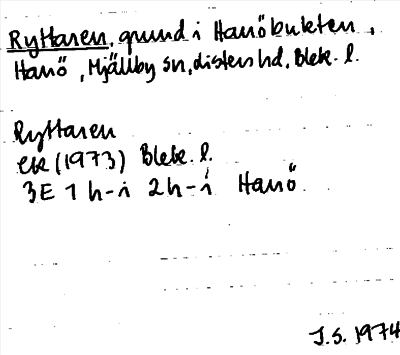 Ryttaren, grund i Hanöbukten,
Hanö, Mjällby sn, Listers hd, Blek. l.
Ryttaren
ek (1973) Blek. l.
3E 1 h-i 2h-i Hanö
J.S. 1974